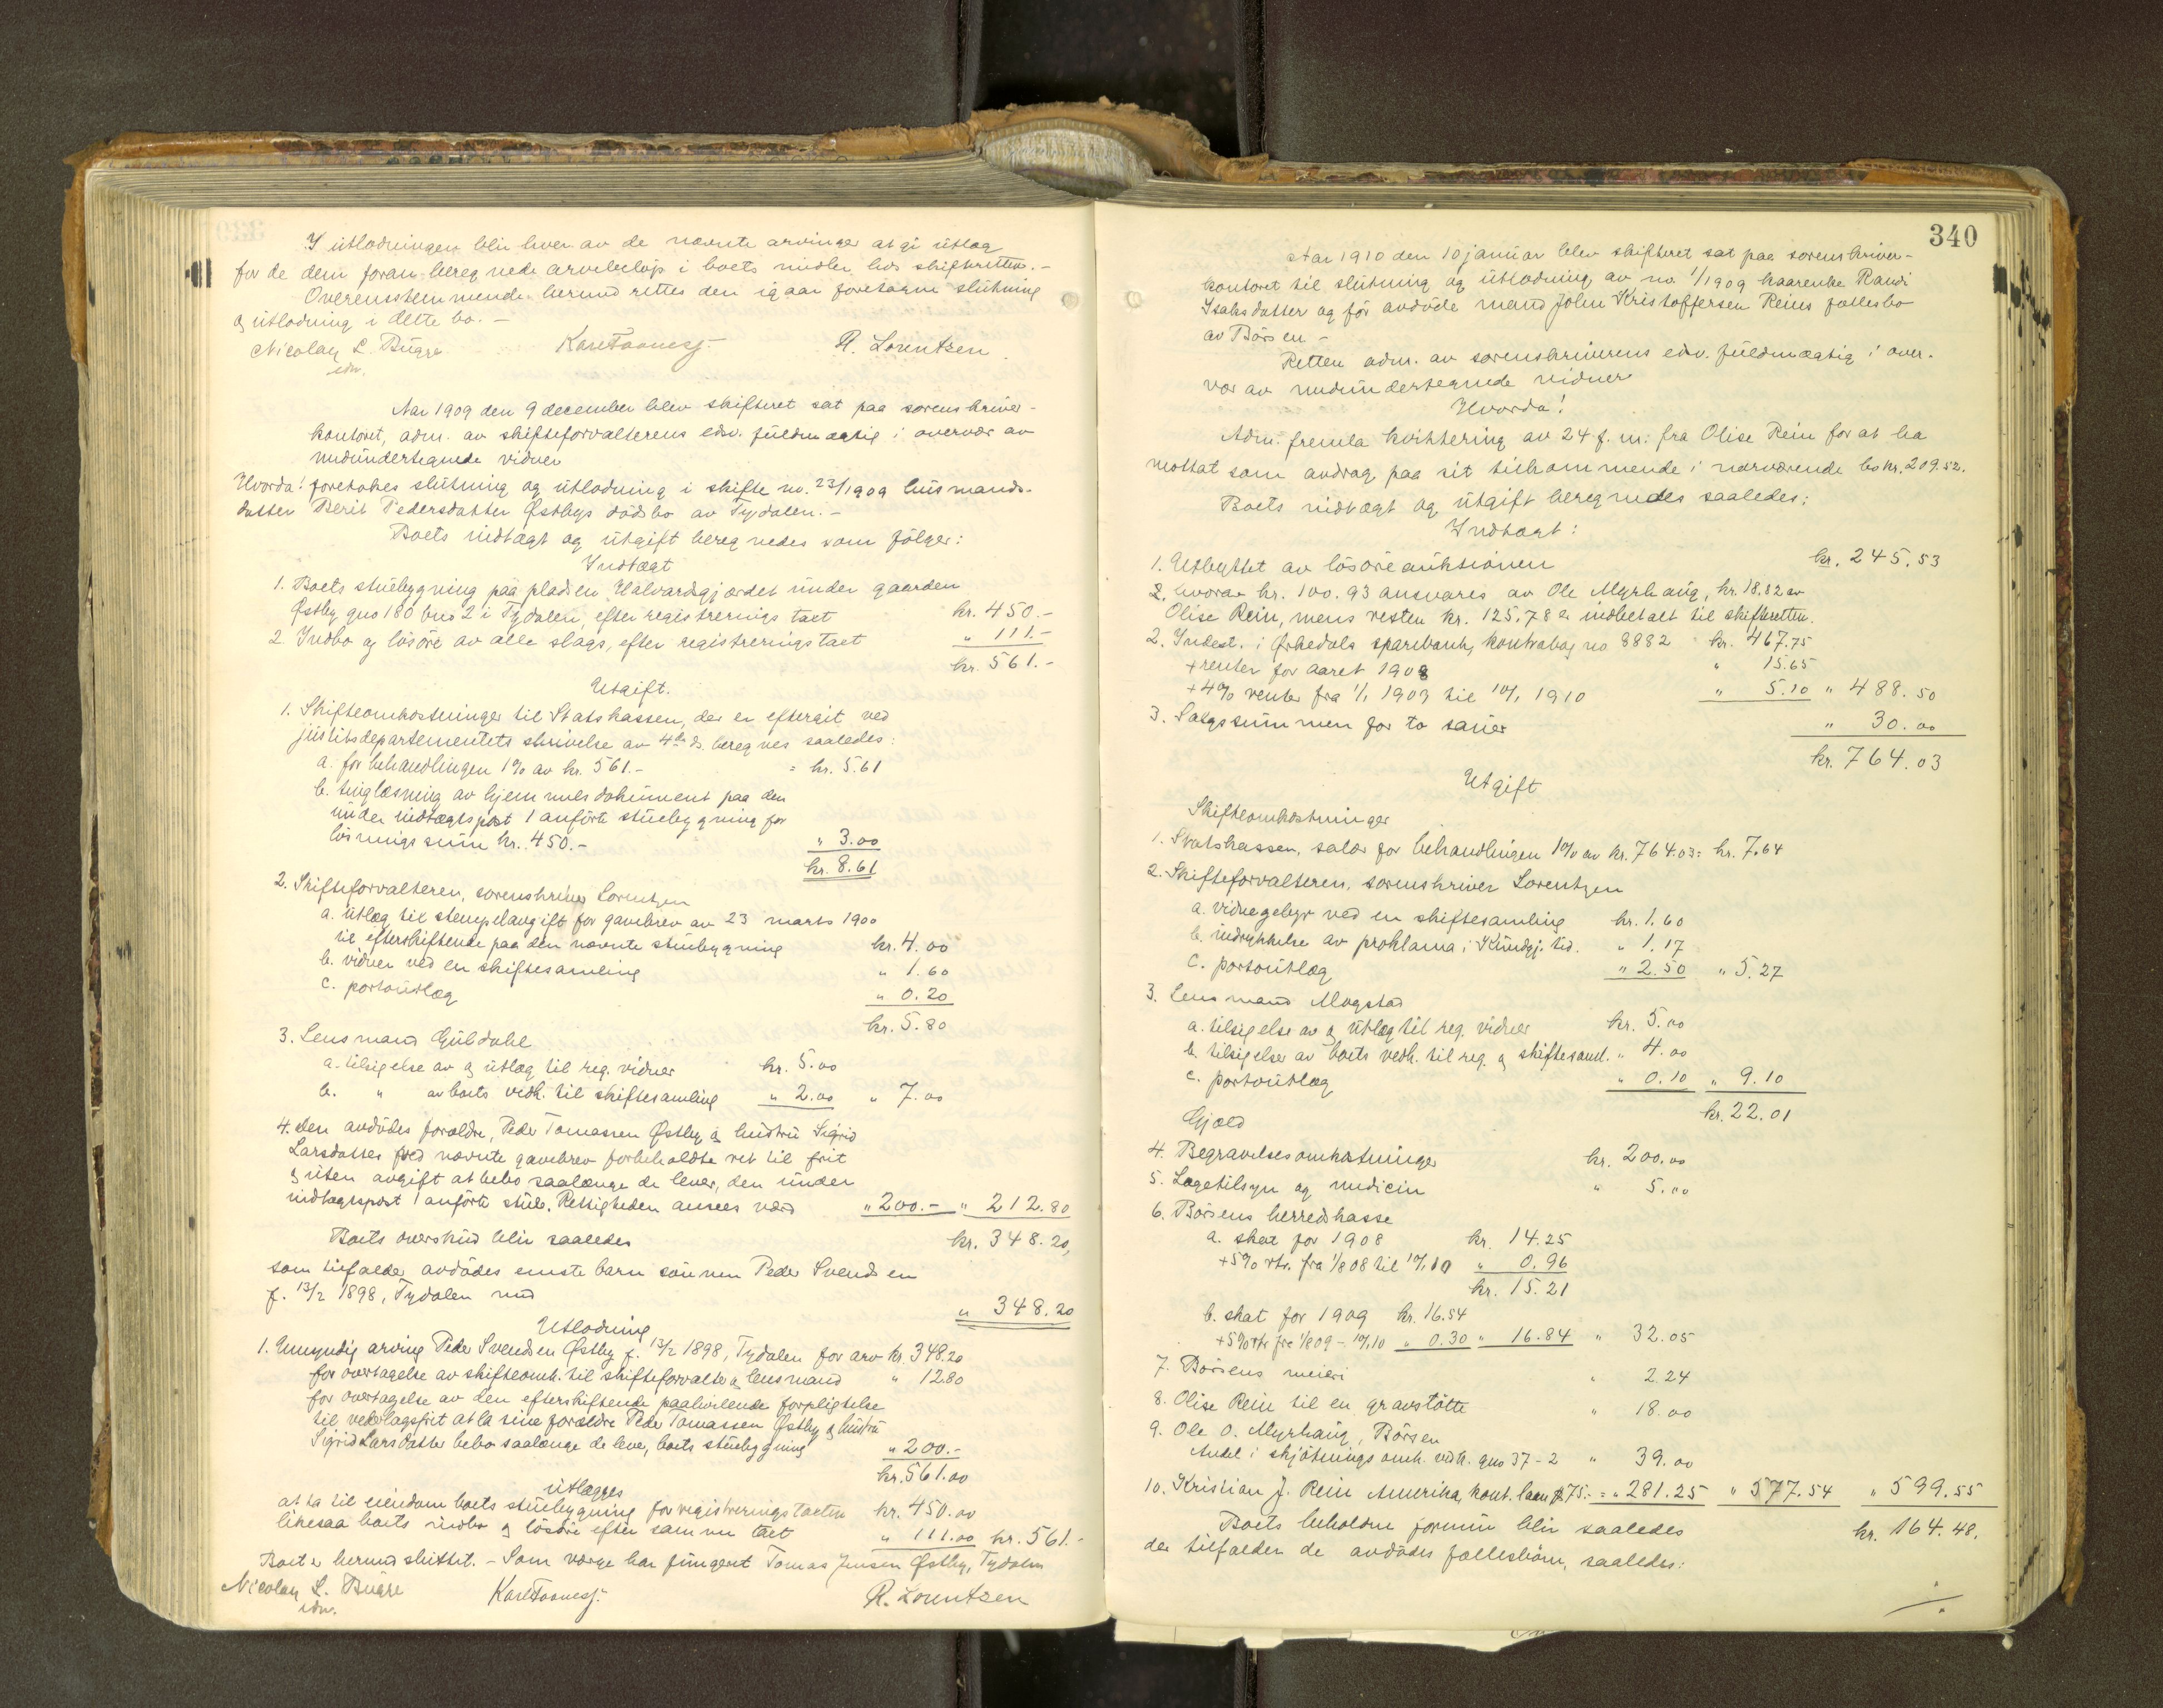 I utlodningen blir hver av de nævnte arvinger at gi utlæg
for de dem foran beregnede arvebeløp i boets midler hos skifteretten. -
Overensstemmende hermed rettes den igaar foretagne slutning
og utlodning i dette bo. -
Nicolay L. Bugge
edv.
Kare Foosnæs
R. Lorentzen.
Aar 1909 den 9 december blev skifteret sat paa sorenskriver-
kontoret, adm. av skifteforvalterens edsv. fuldmægtig i overvær av
medundertegnede vidner
Hvorda! foretokes slutning og utlodning i skifte no. 23/1909 husmands-
datter Berit Pedersdatter Østbys dødsbo av Tydalen. -
Boets indtægt og utgift beregnedes som følger:
Indtægt
1. Boets stuebygning paa pladsen Halvardsgjærdet under gaarden
Østby gno 180 bno 2 i Tydalen, efter registrerings taxt kr. 450.-
2. Indbo og løsøre av alle slags, efter registreringstaxt " 111.-
kr. 561.-
Utgift.
1. Skifteomkostninger til Statskassen, der er eftergit ved
justitsdepartementets skrivelse av 4de ds. beregnes saaledes:
a. for behandlingen 1% av kr. 561.- = kr. 5.61
b. tinglæsning av hjemmelsdokument paa den
under indtægtspost 1 anførte stuebygning for
løsningssum kr. 450.- " 3.00
kr. 8.61
2. Skifteforvalteren, sorenskriver Lorentzen
a. utlæg til stempelavgift for gavebrev av 23 marts 1900
til efterskiftende paa den nævnte stuebygning kr. 4.00
b. vidner ved en skiftesamling " 1.60
c. portoutlæg " 0.20
kr. 5.80
3. Lensmand Guldahl
a. tilsigelse av og utlæg til reg. vidner kr. 5.00
b. " av boets vedk. til skiftesamling " 2.00 " 7.00
4. den avdødes forældre, Peder Tomassen Østby og hustru Sigrid
Larsdatter ved nævnte gavebrev forbeholdte ret til frit
og uten avgift at bebo saalænge de lever, den under
indtægtspost 1 anførte stue. Rettigheden ansees værd " 200.- " 212.80
Boets overskud blir saaledes kr. 348.20,
som tilfalder avdødes eneste barn sønnen Peder Svendsen
f. 13/2 1898, Tydalen med " 348.20
Utlodning
1. Umyndig arving Peder Svendsen Østby f. 13/2 1898, Tydalen for arv kr. 348.20
for overtagelse av skifteomk. til skifteforvalter og lensmand " 12.80
for overtagelse av den efterskiftende paahvilende forpligtelse
til vederlagsfrit at la sine forældre Peder Tomassen Østby og hustru
Sigrid Larsdatter bebo saalænge de lever, boets stuebygning " 200.-
kr. 561.00
utlægges
at ta til eiendom boets stuebygning for registrerings taxten kr. 450.00
likesaa boets indbo og løsøre efter samme taxt " 111.00 kr. 561.-
Boet er hermed sluttet. - Som værge har fungeret Tomas Jensen Østby, Tydalen
Nicolay L. Bugge
edv.
Kare Foosnæs
R. Lorentzen
340
Aar 1910 den 10 januar blev skifteret sat paa sorenskriver-
kontoret til slutning og utlodning av no. 1/1909 kaarenke Randi
Isaksdatter og før avdøde mand John Kristoffersen Reins fællesbo
av Børsen -
Retten adm. av sorenskriverens edsv. fuldmægtig i over-
vær av medundertegnede vidner
Hvorda!
Adm. fremla kvittering av 24 f. m. fra Olise Rein for at ha
mottat som avdrag paa sit tilkommende i nærværende bo kr. 209.52.
Boets indtægt og utgift beregnedes saaledes:
Indtægt:
1. Utbyttet av løsøreauktionen kr. 245.53
2. hvorav kr. 100.93 ansvares av Ole Myrhaug, kr. 18.82 av
Olise Rein, mens resten kr. 125.78 er indbetalt til skifteretten.
2. Indest. i Ørkedals sparebank, kontrabog no 8882 kr. 467.75
+ renter for aaret 1908 " 15.65
+ 4% renter fra 1/1 1909 til 10/1 1910 " 5.10 " 488.50
3. Salgssummen for to sauer " 30.00
kr. 764.03
Utgift
Skifteomkostninger
1. Statskassen, salær for behandlingen 1% av kr. 764.03 = kr. 7.64
2. Skifteforvalteren, sorenskriver Lorentzen
a. vidnegebyr ved en skiftesamling kr. 1.60
b. indrykkelse av proklama i Kundgj. tid. " 1.17
c. portoutlæg " 2.50 " 5.27
3. Lensmand Mogstad
a. tilsigelse av og utlæg til reg. vidner kr. 5.00
b. tilsigelse av boets vedk. til reg. og skiftesaml. " 4.00
c. portoutlæg " 0.10 " 9.10
kr. 22.01
Gjæld
4. Begravelsesomkostninger kr. 200.00
5. Lægetilsyn og medicin " 5.00
6. Børsens herredskasse
a. skat for 1908 kr. 14.25
+ 5% rtr. fra 1/8 08 til 10/1 10 " 0.96
kr. 15.21
b. skat for 1909 kr. 16.54
+ 5% rtr fra 1/8 09 - 10/1 10 " 0.30 " 16.84 " 32.05
7. Børsens meieri " 2.24
8. Olise Rein til en gravstøtte " 18.00
9. Ole O. Myrhaug, Børsen
Andel i skjøtnings omk. vedk. gno 37-2 " 39.00
10. Kristian J. Rein Amerika, kont. laan $ 75.- = " 281.25 " 577.54 " 599.55
Boets beholdne formue blir saaledes kr. 164.48.
der tilfalder de avdødes fællesbørn, saaledes: